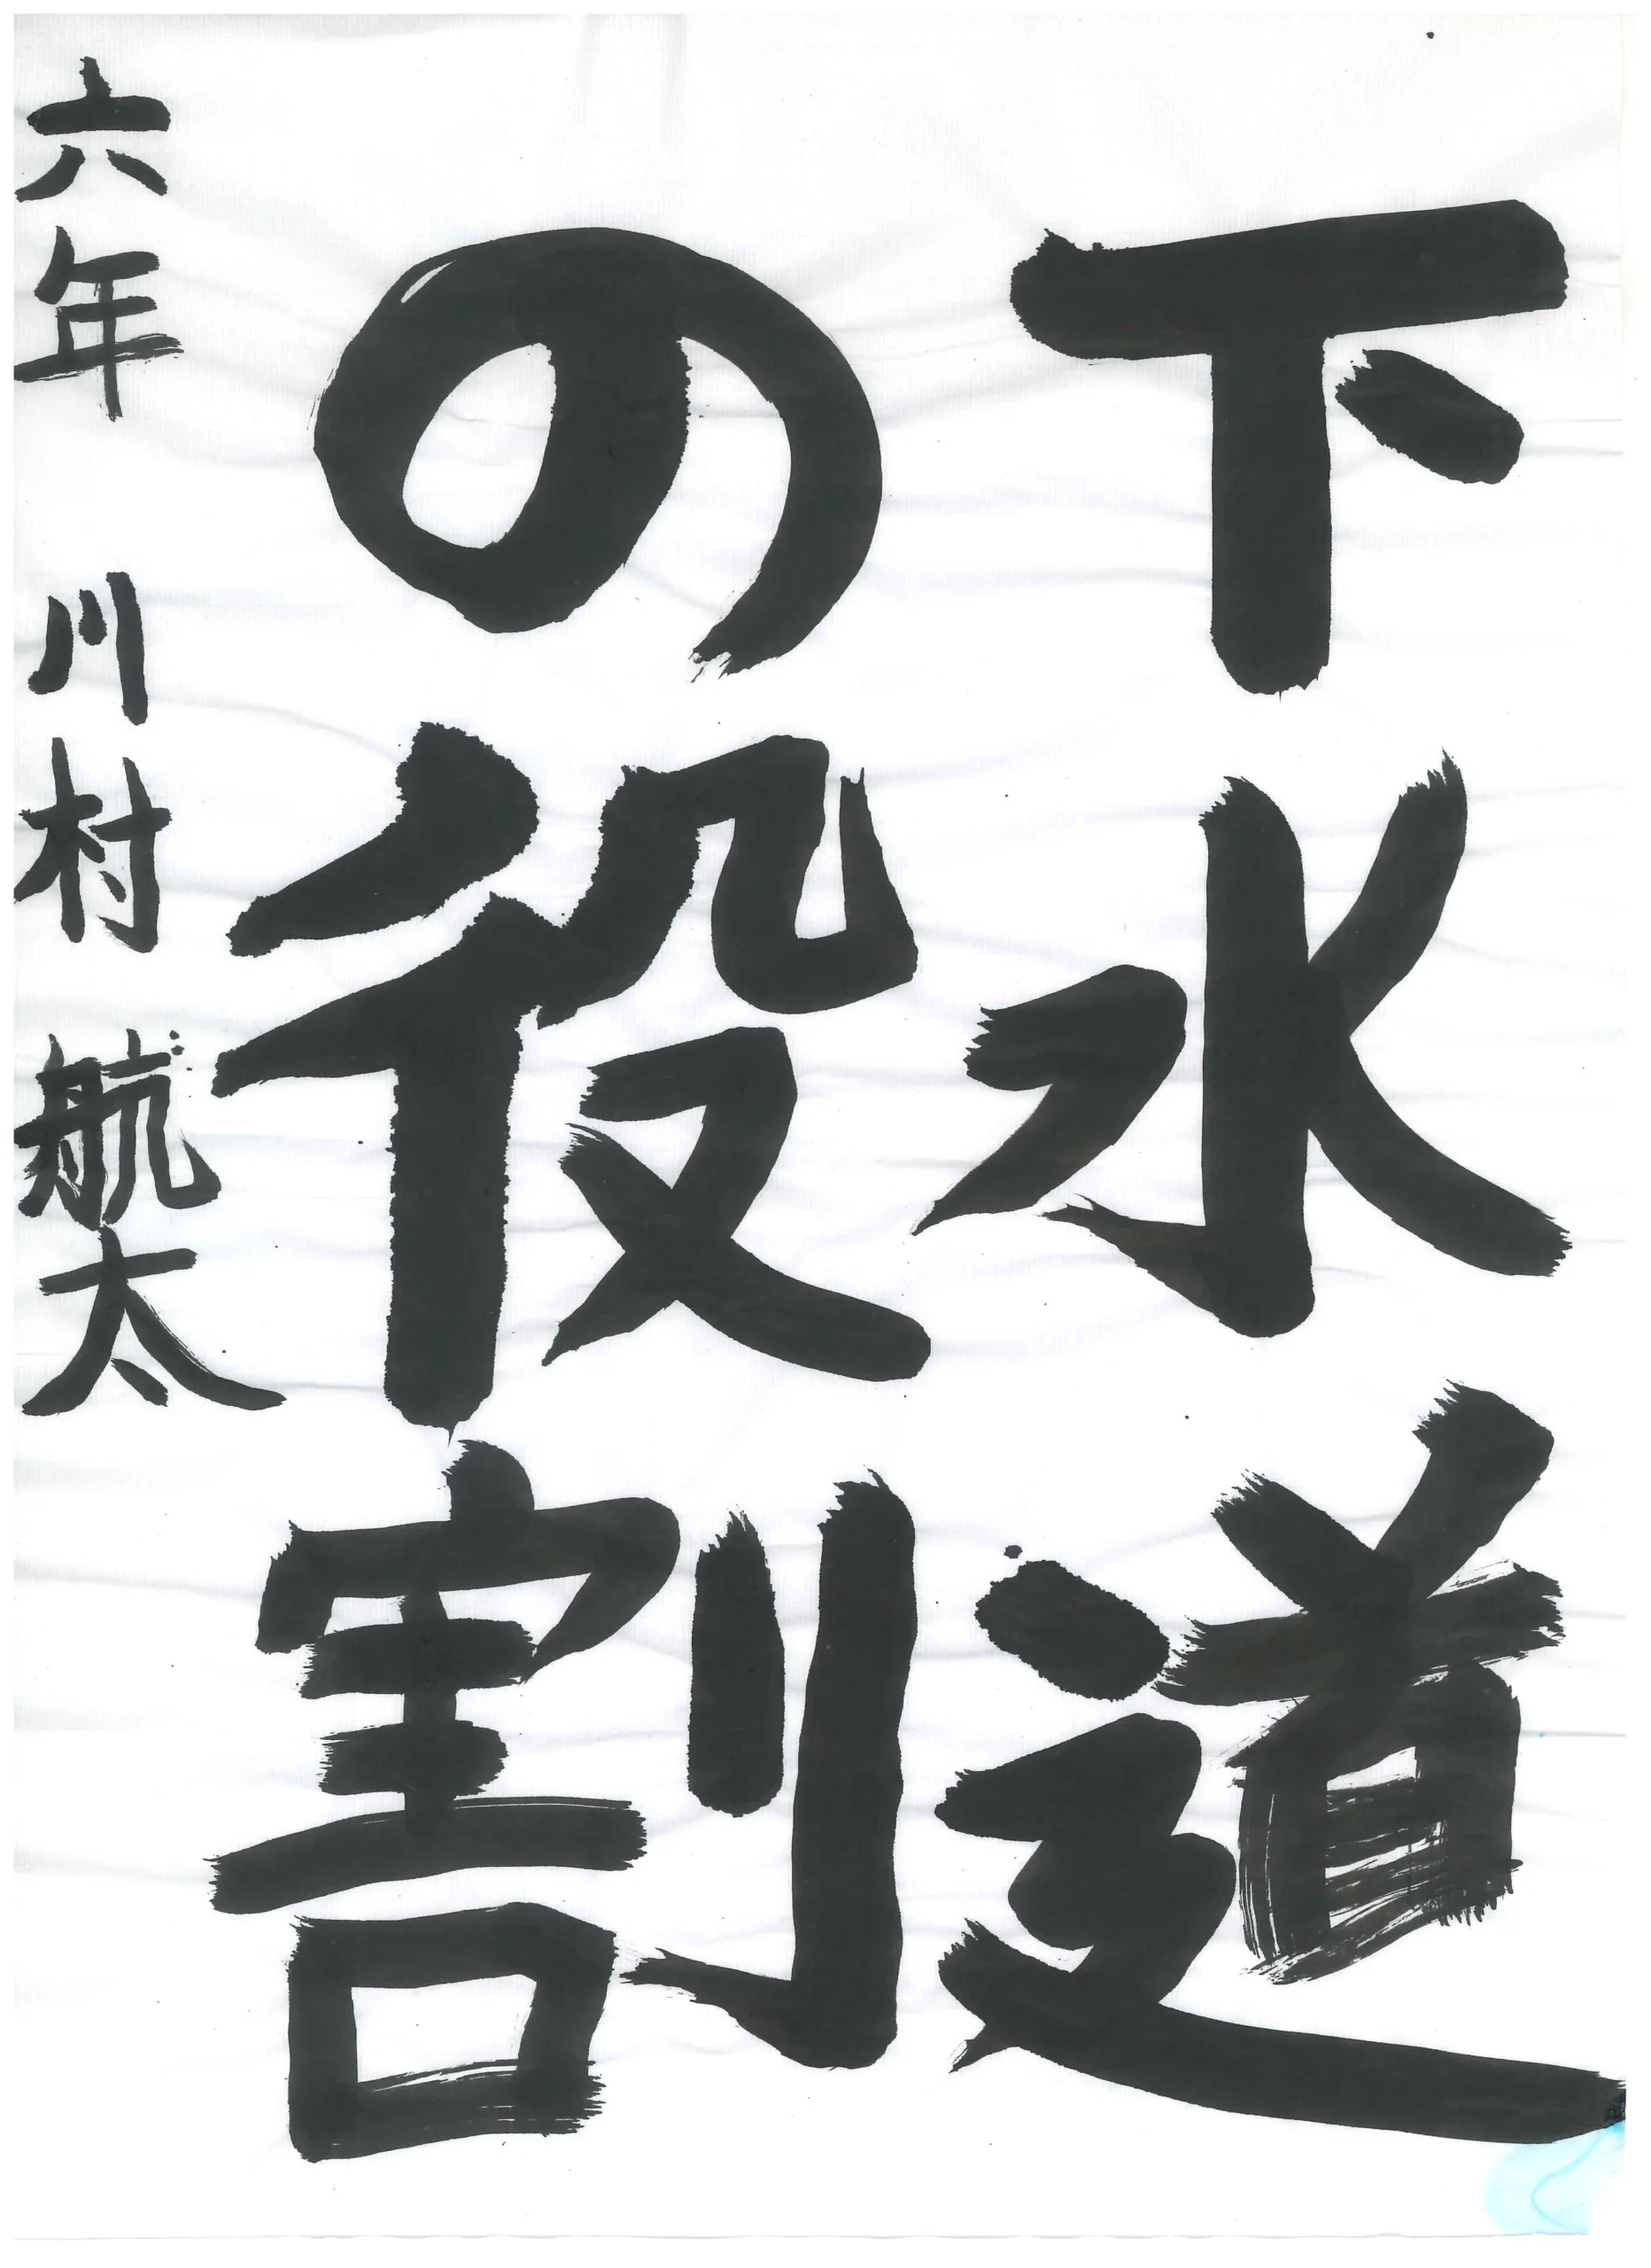 下水道
の役割
六年 川村 航太